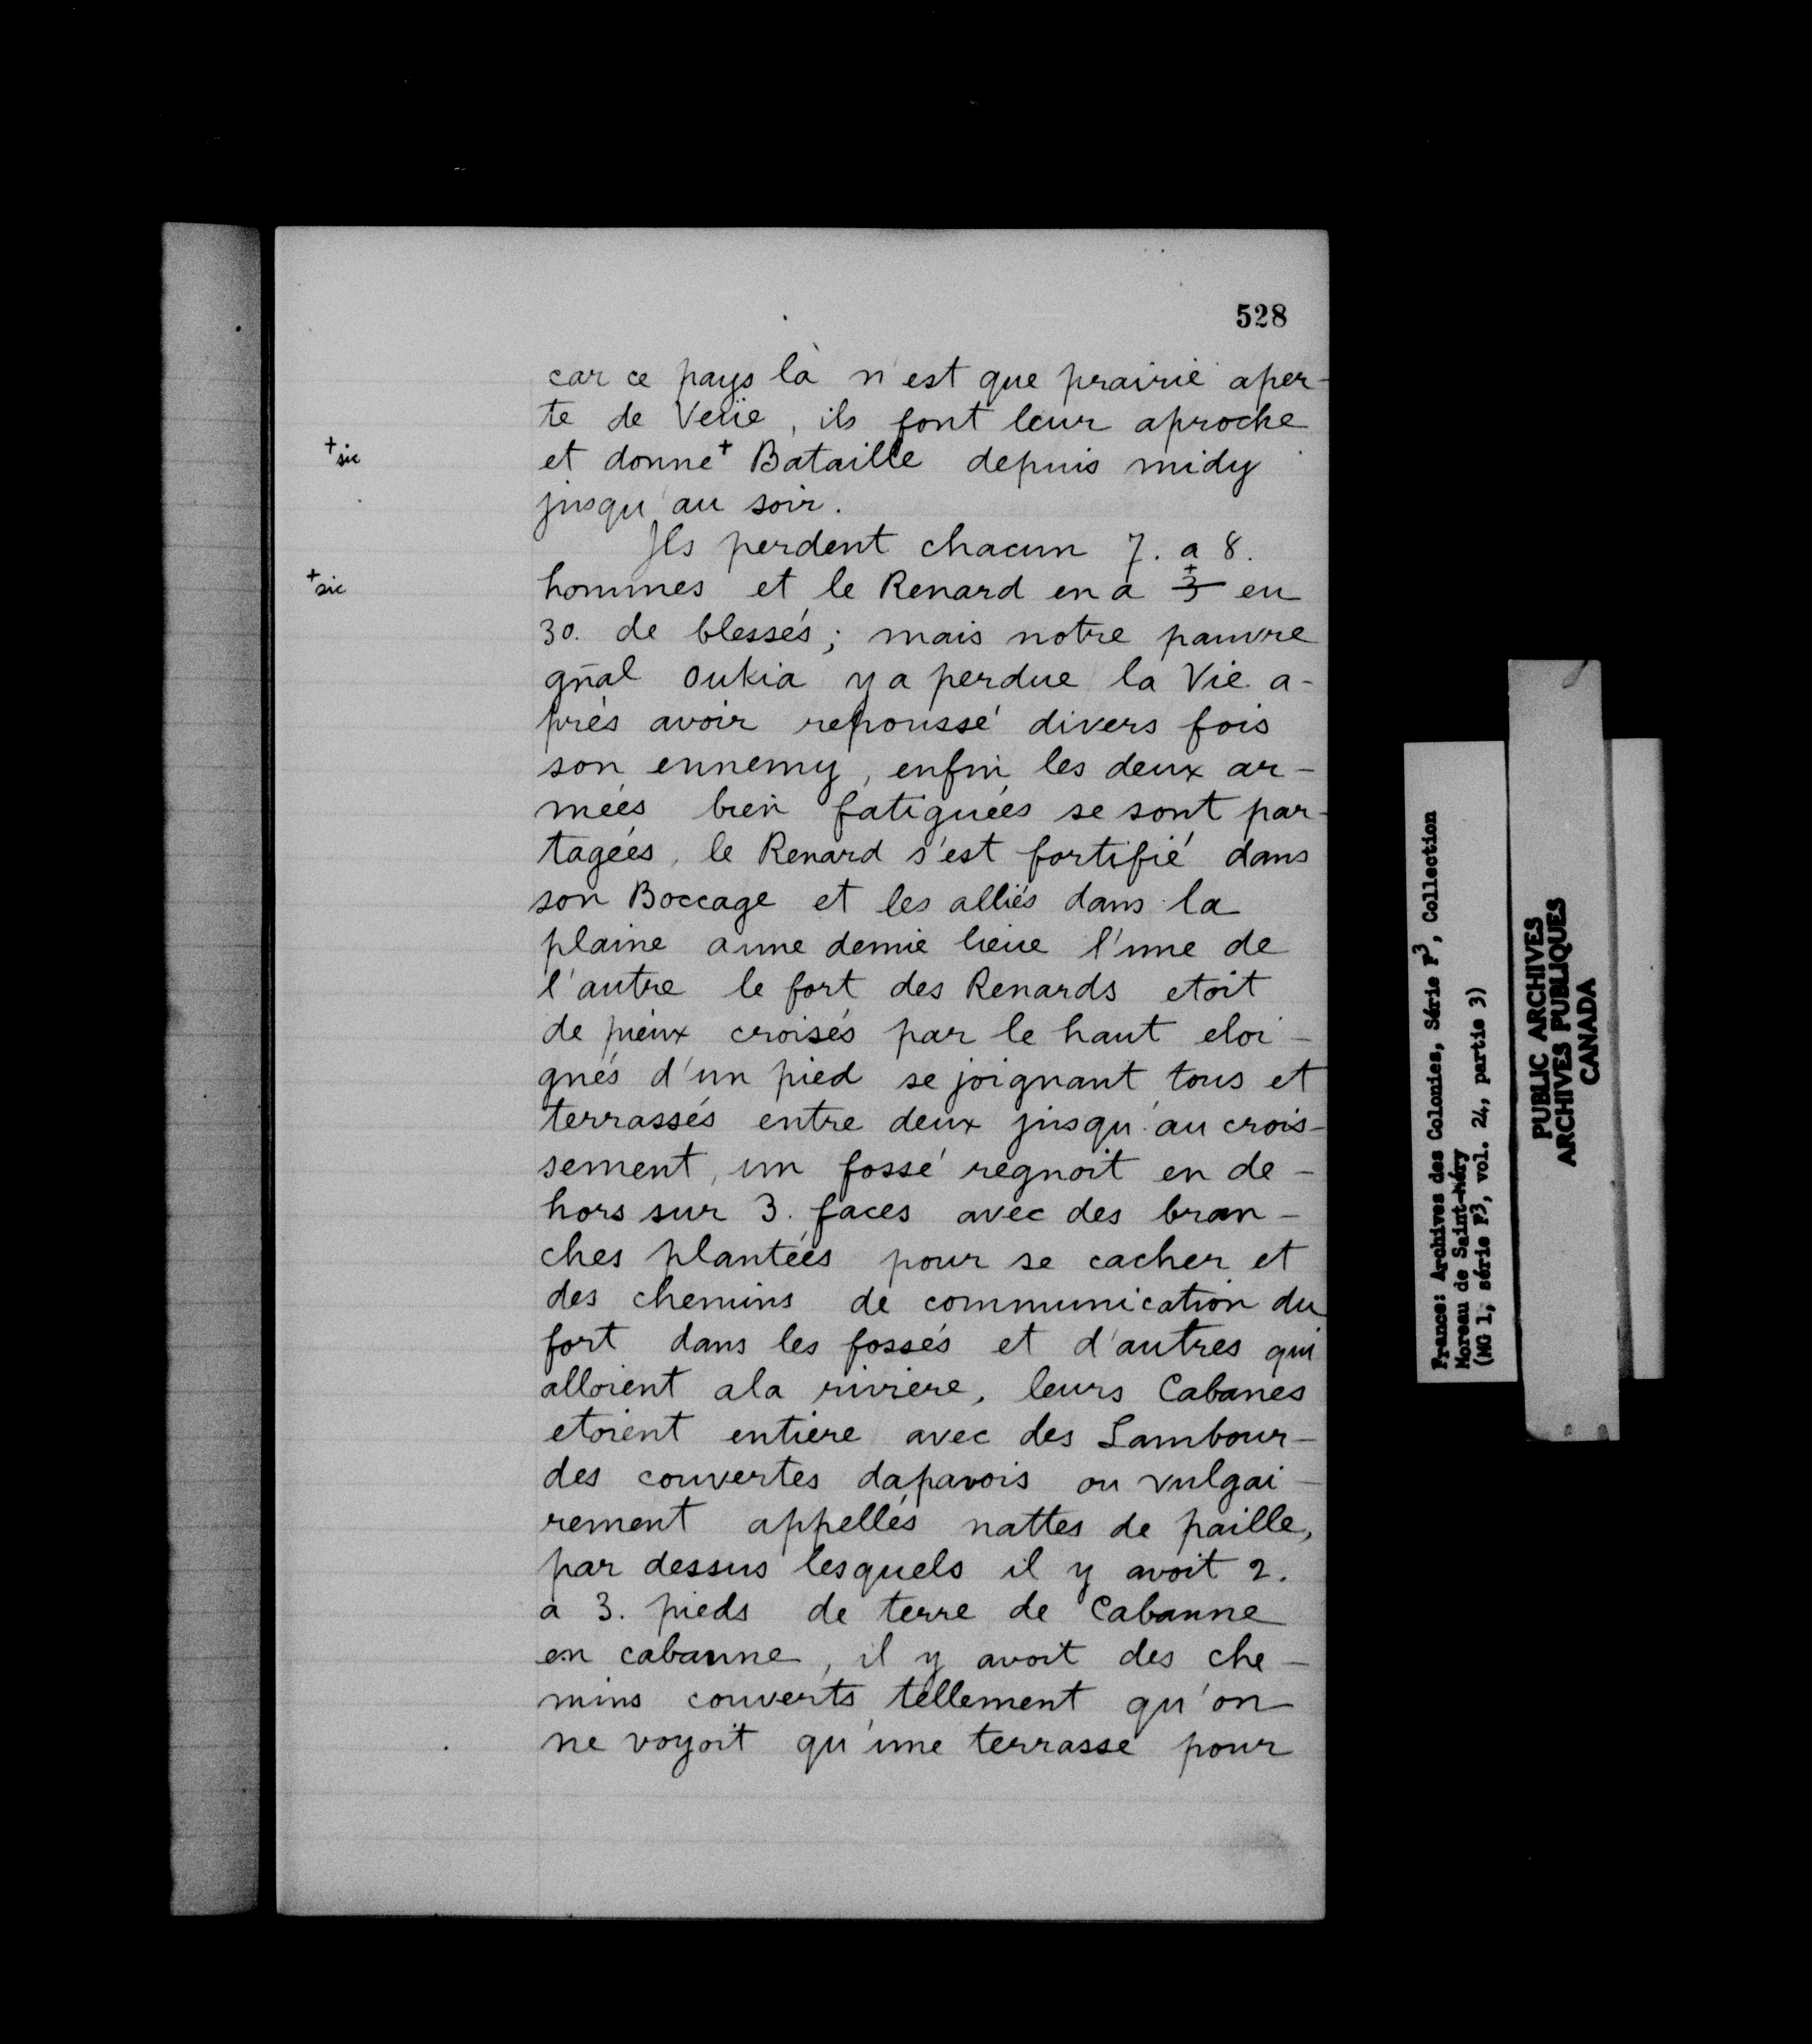 528
car ce pays là n'est que prairie aper-
te de Veüe, ils font leur aproche
+ sic
et donne + Bataille depuis midy
jusqu'au soir.
Ils perdent chacun 7. a 8.
+ sic
hommes et le Renard en a + 3 eu
30. de blessés; mais notre pauvre
gñal oukia y a perdue la Vie a-
près avoir repoussé divers fois
son ennemy, enfin les deux ar-
mées bien fatiguées se sont par-
tagées, le Renard s'est fortifié dans
son Boccage et les alliés dans la
plaine a une demie lieue l'une de
l'autre le fort des Renards etoit
de pieux croisés par le haut eloi-
gnés d'un pied se joignant tous et
terrassés entre deux jusqu'au crois-
sement, un fossé regnoit en de-
hors sur 3. faces avec des bran-
ches plantées pour se cacher et
des chemins de communication du
fort dans les fossés et d'autres qui
alloient a la riviere, leurs Cabanes
etoient entiere avec des Lambour-
des couvertes dapavois ou vulgai-
rement appellés nattes de paille,
par dessus lesquels il y avoit 2.
a 3. pieds de terre de Cabanne
en cabanne, il y avoit des che-
mins couverts tellement qu'on
ne voyoit qu'une terrasse pour
France: Archives des Colonies, Série F3, Collection
Moreau de Saint-Méry
(MG 1, série F3, vol. 24, partie 3)
PUBLIC ARCHIVES
ARCHIVES PUBLIQUES
CANADA